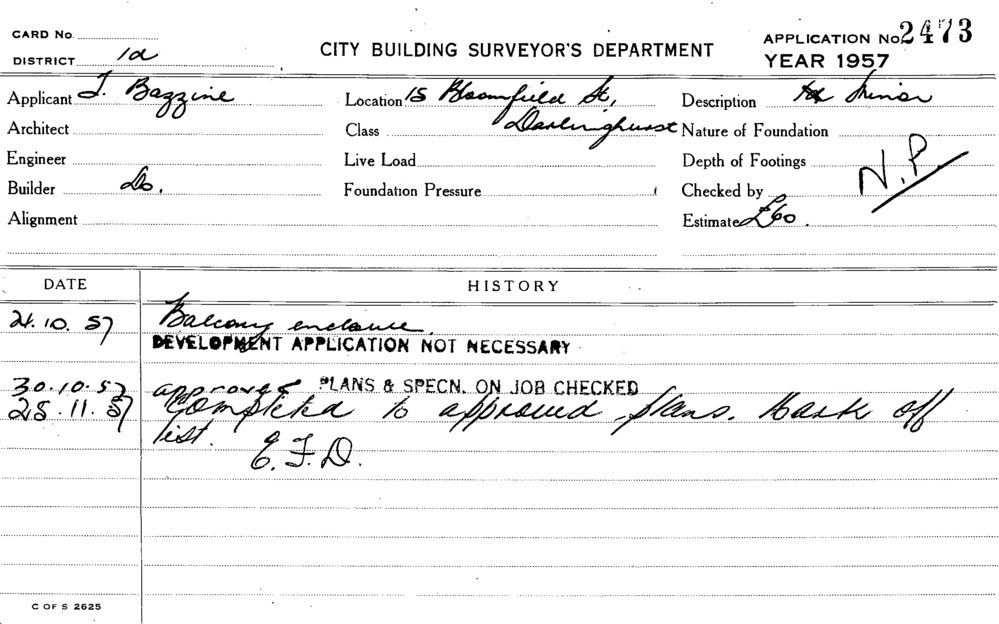 CARD No.
DISTRICT 1a
CITY BUILDING SURVEYOR'S DEPARTMENT
APPLICATION No. 2473
YEAR 1957
Applicant J. Bazzine
Location 15 Bloomfield St,
Description Minor
Architect
Class Darlinghurst
Nature of Foundation
Engineer
Live Load
Depth of Footings
N.P.
Builder Do.
Foundation Pressure
Checked by
Alignment
Estimate £60.
DATE
HISTORY
21.10.57 Balcony enclosure.
DEVELOPMENT APPLICATION NOT NECESSARY
30.10.57 approved PLANS & SPECN. ON JOB CHECKED
25.11.57 Completed to approved plans. Mark off
list. E.F.D.
C OF S 2625